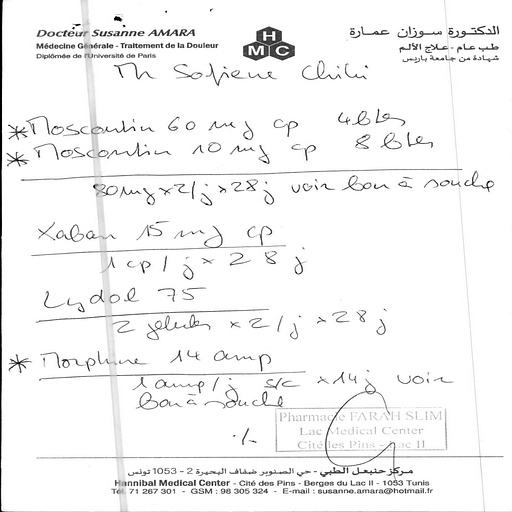 Docteur Susanne AMARA
الدكتورة سوزان عمارة
Médecine Générale - Traitement de la Douleur
طب عام - علاج الألم
Diplômée de l'Université de Paris
شهادة من جامعة باريس
H
M C
Mr Sofiene Chihi
* Moscontin 60 mg cp 4 btes
* Moscontin 10 mg cp 8 btes
80mg x 2/j x 28j voir bon à souche
Xaban 15 mg cp
1 cp / j x 28 j
Lydol 75
2 gélules x 2/j x 28 j
* Morphine 14 amp
1 amp/j s/c x 14j voir
bon à souche
Pharmacie FARAH SLIM
Lac Medical Center
Cité des Pins - Lac II
·/-
مركز حنبعل الطبي - حي الصنوبر ضفاف البحيرة 2 - 1053 تونس
Hannibal Medical Center - Cité des Pins - Berges du Lac II - 1053 Tunis
Tél. 71 267 301 - GSM : 98 305 324 - E-mail : susanne.amara@hotmail.fr